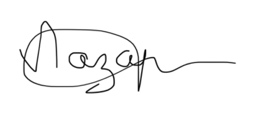 Лазар